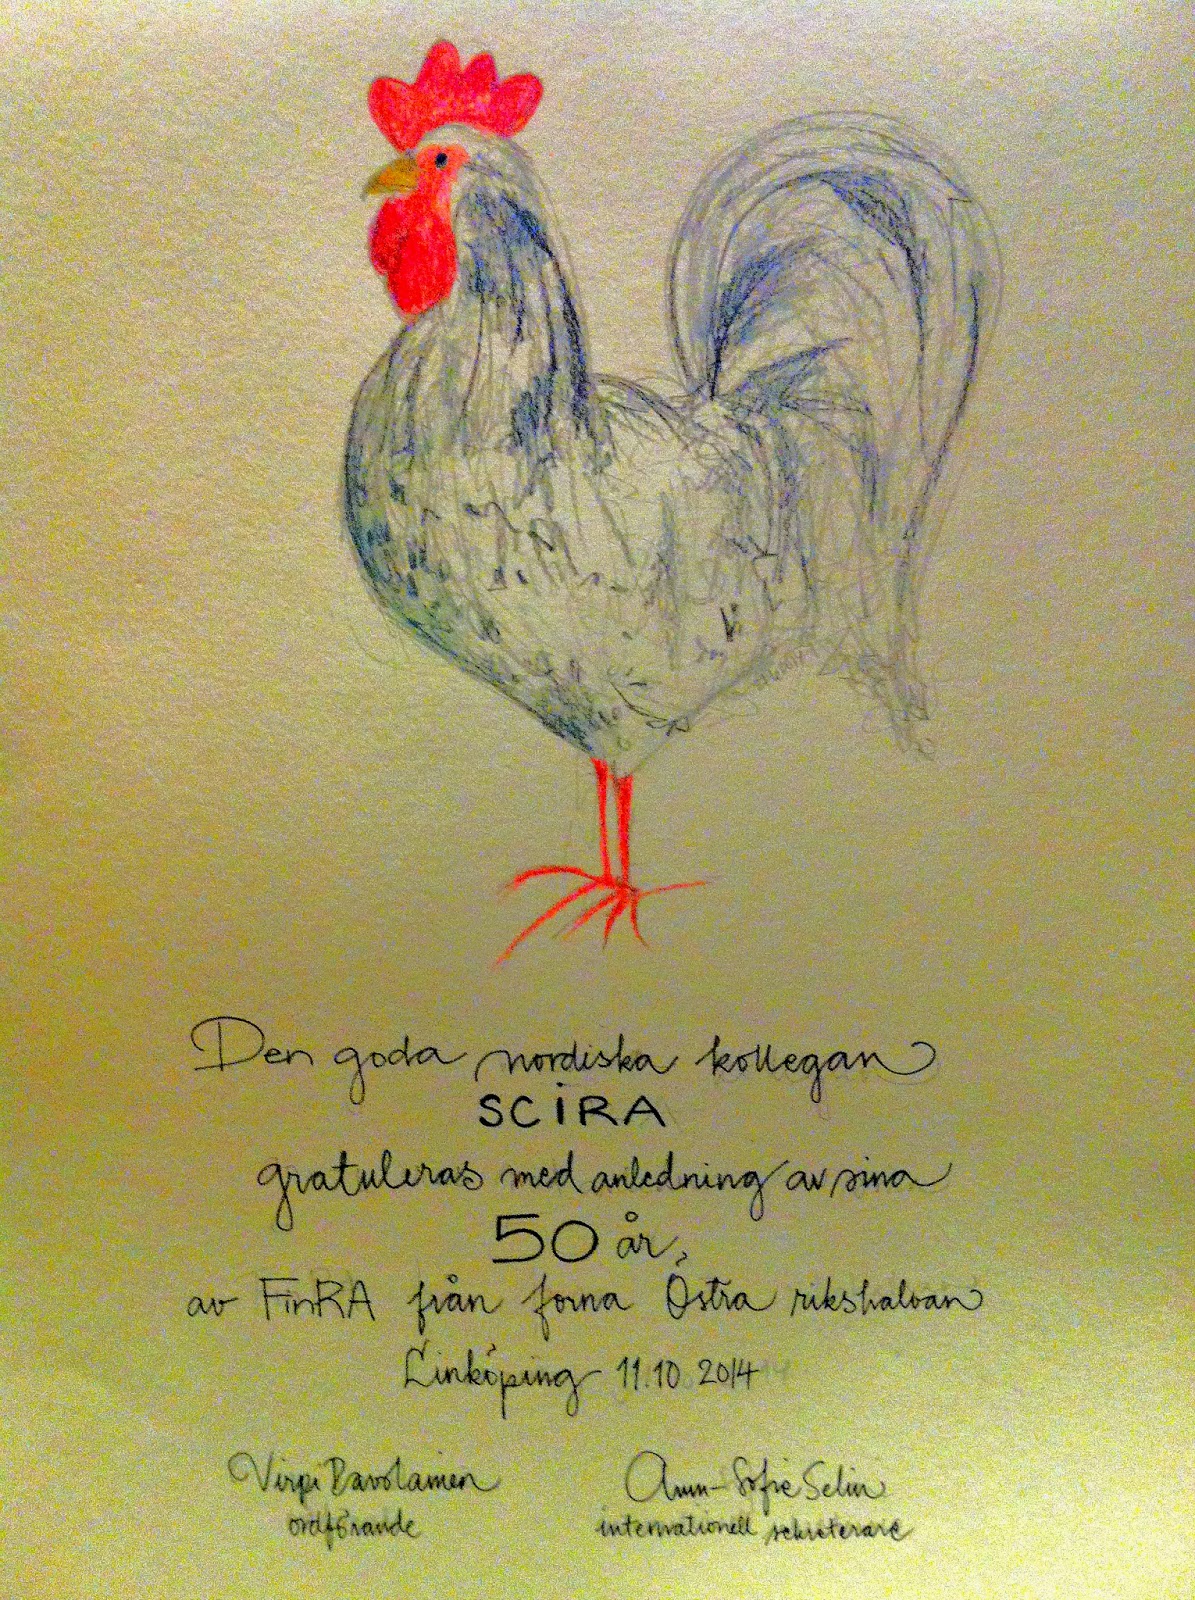 Den goda nordiska kollegan
SCiRA
gratuleras med anledning av sina
50 år,
av FinRA från forna Östra rikshalvan
Linköping 11.10 2014
Virpi Davolainen Ann-Sofie Selin
ordförande internationell sekreterare